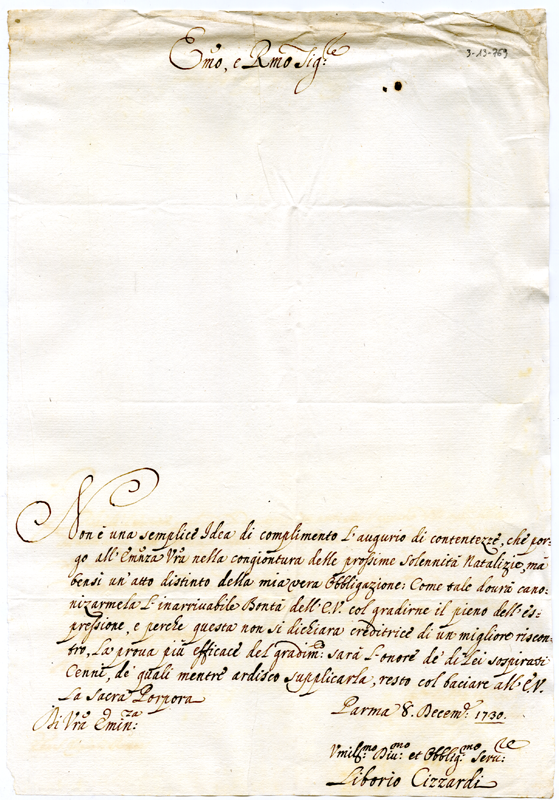 Emo, e Rmo Sig:re
3-13-769
Non è una semplice Idea di complimento L'augurio di contentezze, che por-
go all'Eminza Vra nella congiontura delle prossime Solennità Natalizie, ma
bensì un'atto distinto della mia vera Obbligazione: Come tale dourà cano-
nizarmela L'inarrivabile Bontà dell'E.V. col gradirne il pieno dell'es-
pressione, e perche questa non si dichiara creditrice di un migliore riscon-
tro, La proua più efficace del gradim:to sarà L'onore de' di Lei sospirati
Cenni, de' quali mentre ardisco supplicarla, resto col baciare all'E.V.
La Sacra Porpora
Di Vra Emin:za
Parma 8. Decem: 1730.
Vmil:mo Diu:mo et Obblig:mo Seru:re
Liborio Cizzardi